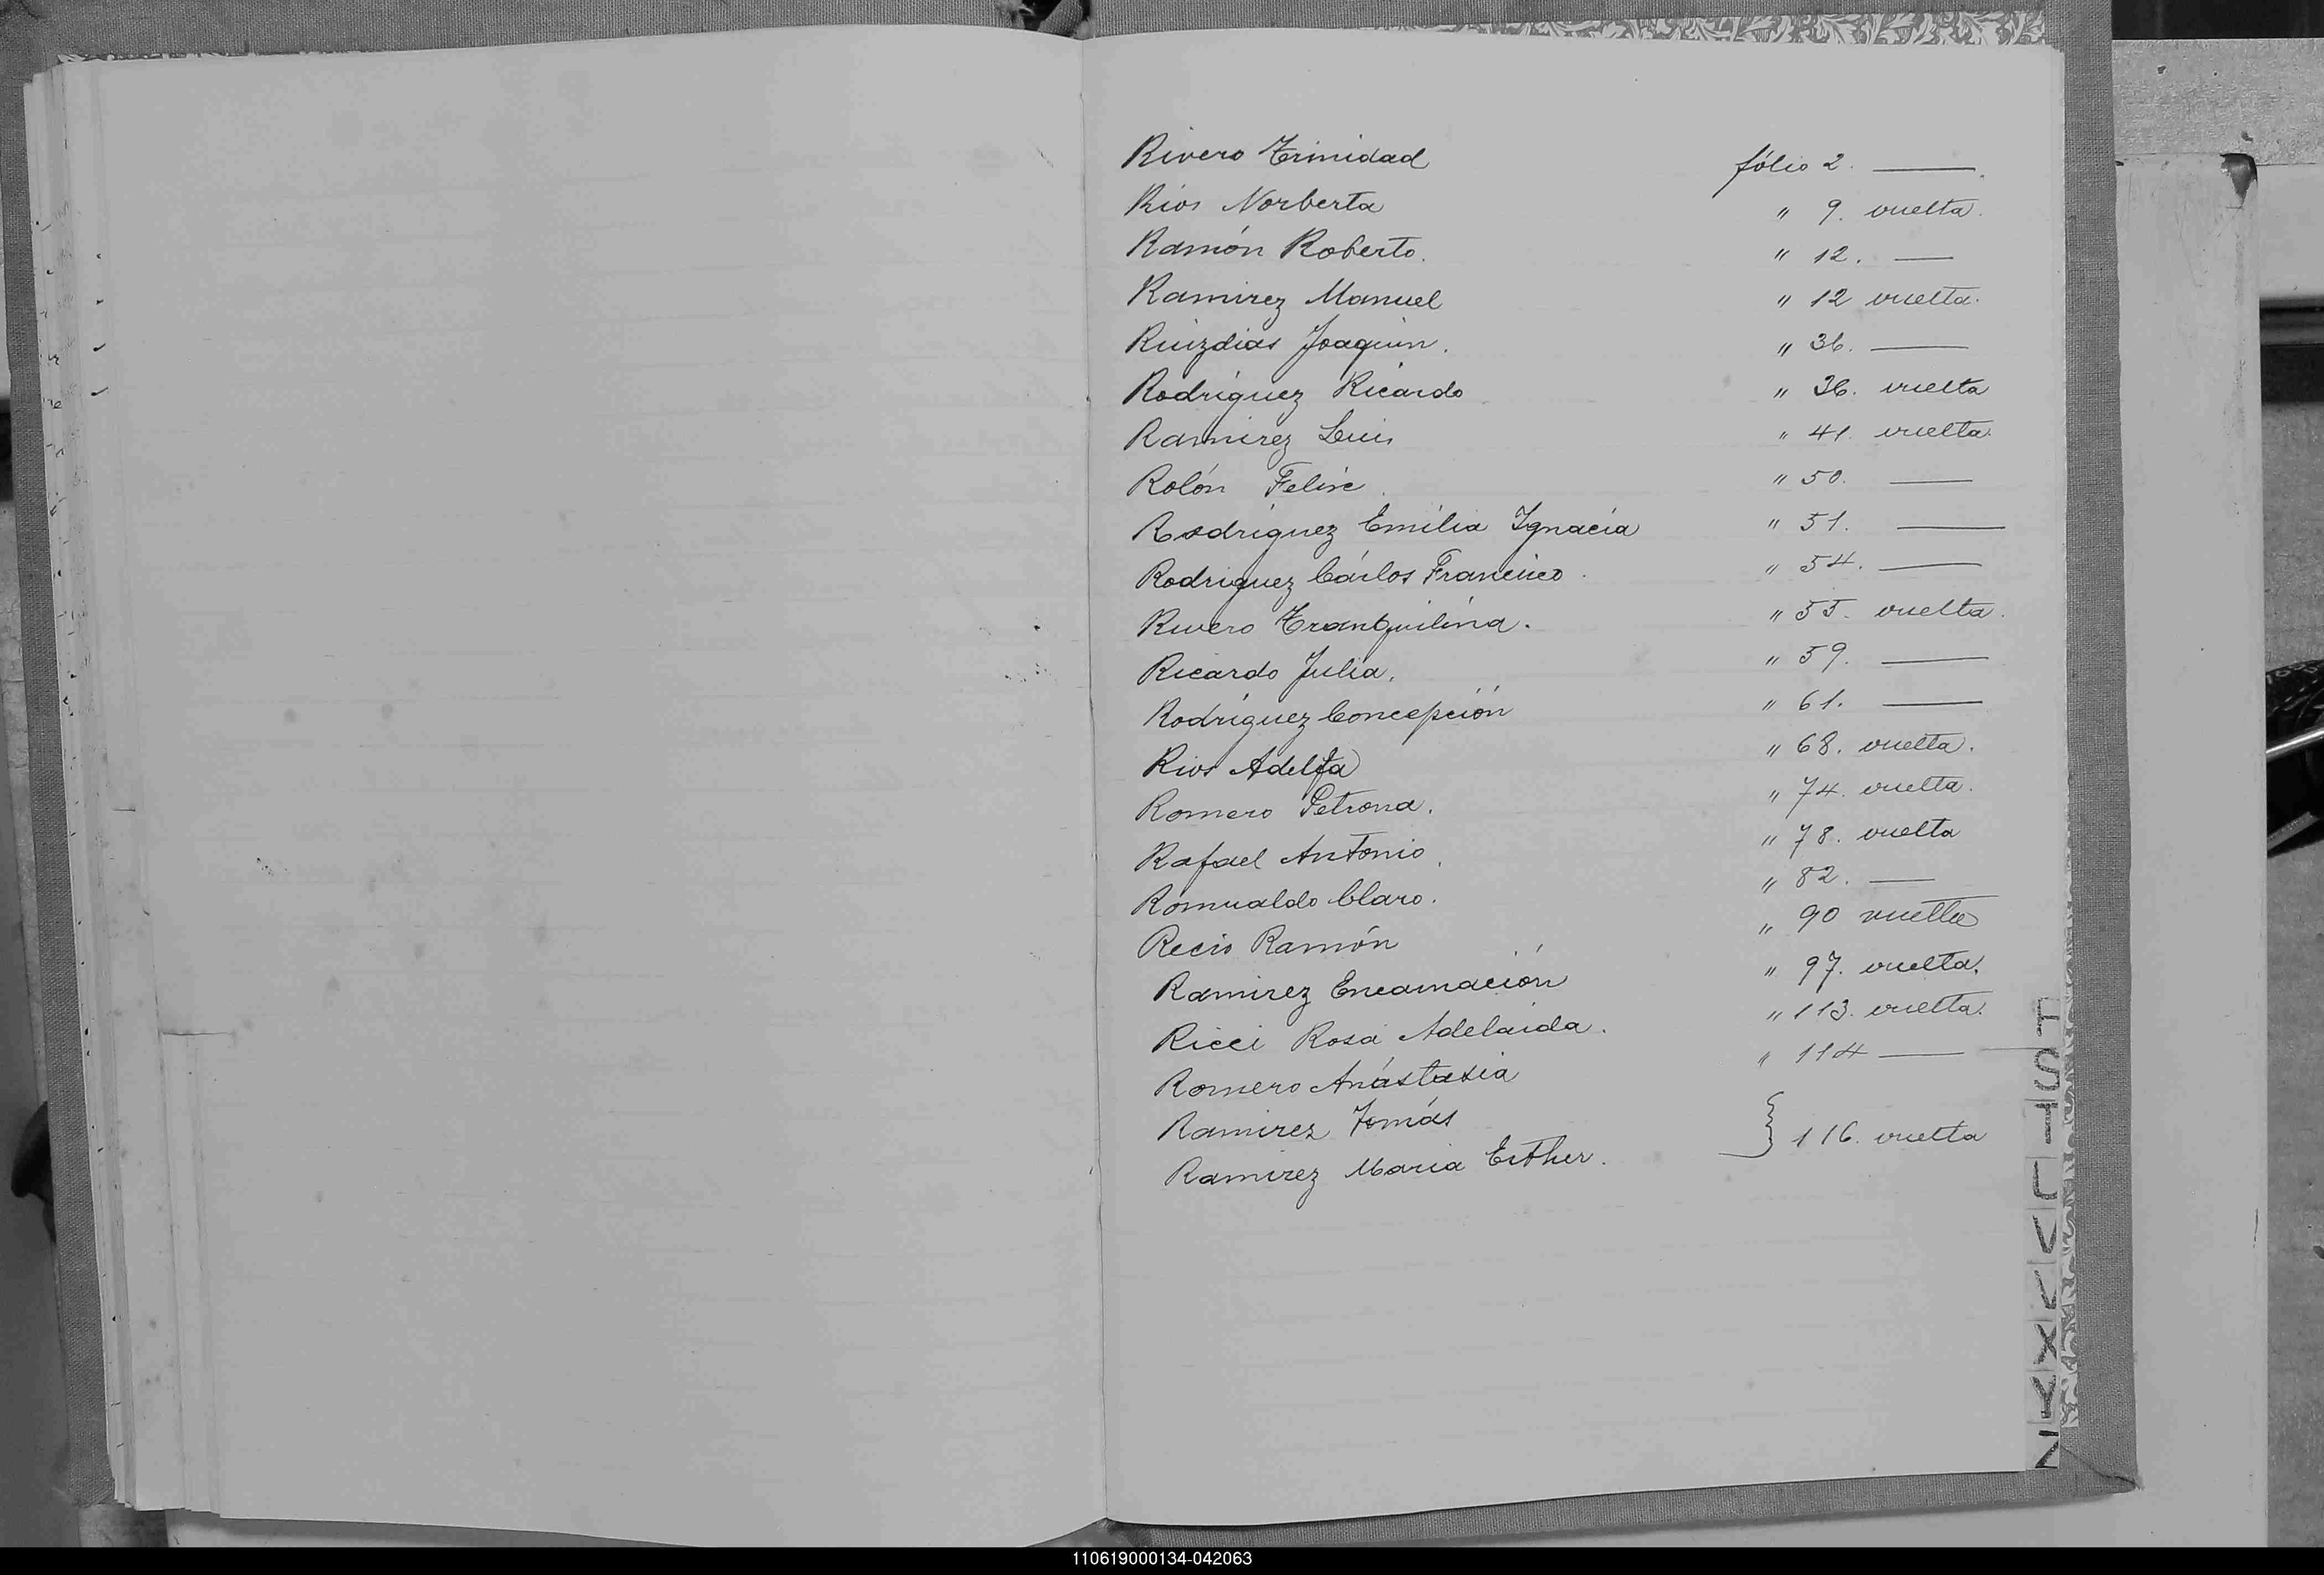 Rivero Trinidad fólio 2. ———
Rios Norberta " 9. vuelta.
Ramón Roberto. " 12. ——
Ramirez Manuel " 12 vuelta.
Ruizdias Joaquin. " 36. ———
Rodriguez Ricardo " 36. vuelta
Ramirez Luis " 41. vuelta.
Rolón Felix. " 50. ———
Rodriguez Emilia Ignacia " 51. ———
Rodriguez Cárlos Francisco. " 54. ———
Rivero Tranquilina. " 55. vuelta.
Ricardo Julia. " 59. ———
Rodriguez Concepción " 61. ———
Rios Adelfa " 68. vuelta.
Romero Petrona. " 74. vuelta.
Rafael Antonio. " 78. vuelta
Romualdo Claro. " 82. ——
Recio Ramón " 90 vuelta
Ramirez Encarnación " 97. vuelta.
Ricci Rosa Adelaida. " 113. vuelta.
Romero Anástasia " 114 ———
Ramirez Tomás
Ramirez Maria Esther. } 116. vuelta
S
T
X
Z
110619000134-042063